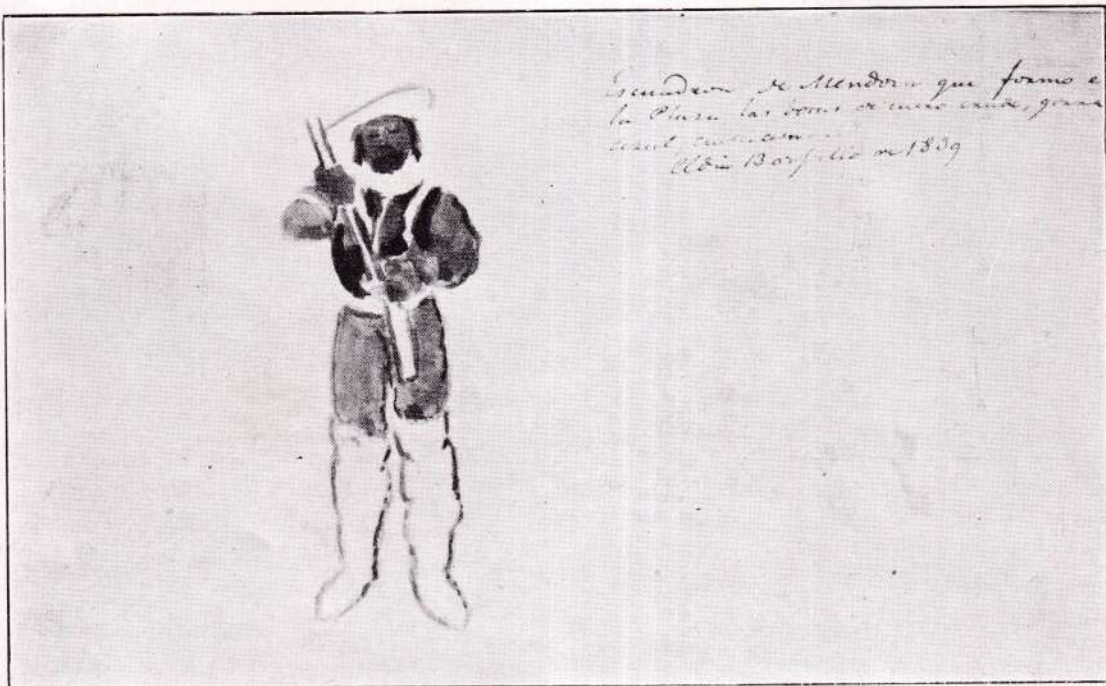 Escuadron de Mendoza que formo e
la Plaza las botas de cuero crudo, gorra
azul
El dia 13 de Julio de 1839